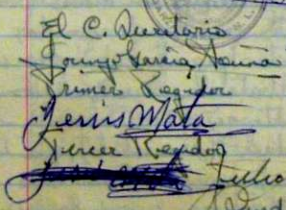 El C. Secretario
Lorenzo García Acuña
Primer Regidor
Jesús Mata
Tercer Regidor
Julio